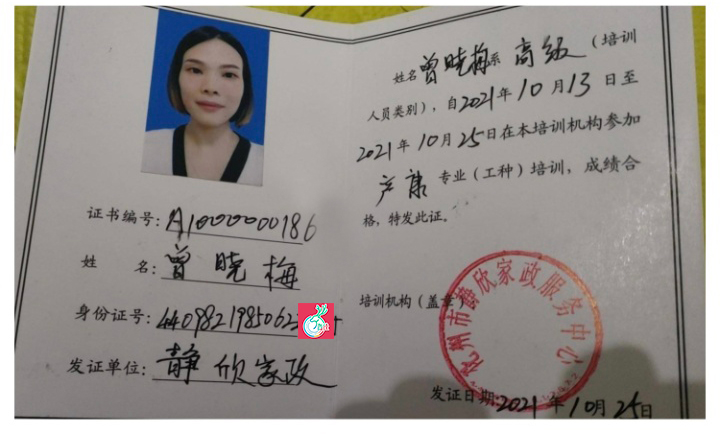 证书编号：A1000000186
姓 名：曾晓梅
身份证号：4409821985062
发证单位：静欣家政
姓名曾晓梅系高级（培训
人员类别），自2021年10月13日至
2021年10月25日在本培训机构参加
产康专业（工种）培训，成绩合
格，特发此证。
培训机构（盖章）
州市静欣家政服务中心
发证日期：2021年10月25日